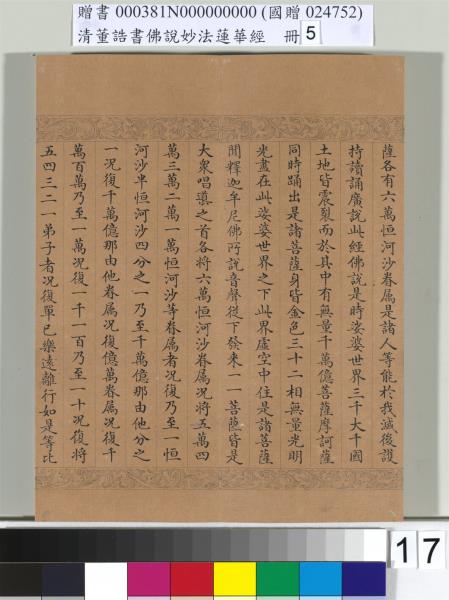 贈書 000381N000000000 (國贈 024752)
清董誥書佛說妙法蓮華經 冊 5
薩各有六萬恒河沙眷屬是諸人等能於我滅後護
持讀誦廣說此經佛說是時娑婆世界三千大千國
土地皆震裂而於其中有無量千萬億菩薩摩訶薩
同時踊出是諸菩薩身皆金色三十二相無量光明
先盡在此娑婆世界之下此界虛空中住是諸菩薩
聞釋迦牟尼佛所說音聲從下發來一一菩薩皆是
大衆唱導之首各將六萬恒河沙眷屬況將五萬四
萬三萬二萬一萬恒河沙等眷屬者況復乃至一恒
河沙半恒河沙四分之一乃至千萬億那由他分之
一況復千萬億那由他眷屬況復億萬眷屬況復千
萬百萬乃至一萬況復一千一百乃至一十況復將
五四三二一弟子者況復單已樂遠離行如是等比
17